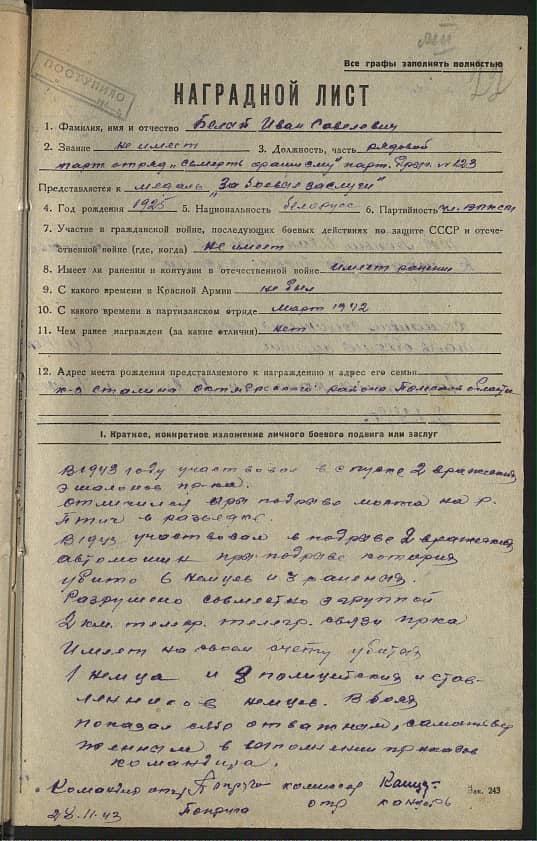 Все графы заполнять полностью
22
ПОСТУПИЛО
НАГРАДНОЙ ЛИСТ
1. Фамилия, имя и отчество Белай Иван Савелович
2. Звание не имеет 3. Должность, часть рядовой
парт. отряд „Смерть фашизму" парт. бриг. № 123
Представляется к медаль „За боевые заслуги"
4. Год рождения 1925 5. Национальность белорусс 6. Партийность чл. ВЛКСМ
7. Участие в гражданской войне, последующих боевых действиях по защите СССР и отече-
ственной войне (где, когда) не имеет
8. Имеет ли ранения и контузии в отечественной войне имеет ранение
9. С какого времени в Красной Армии не был
10. С какого времени в партизанском отряде март 1942
11. Чем ранее награжден (за какие отличия) нет
12. Адрес места рождения представляемого к награждению и адрес его семьи
к-з Сталина октябрьского района Полесской области
I. Краткое, конкретное изложение личного боевого подвига или заслуг
В 1943 году участвовал в спуске 2 вражеских
эшалонов пр-ка.
отличился при подрыве моста на р.
Птич в разведке.
В 1943 участвовал в подрыве 2 вражеских
автомошин при подрыве которых
убито 6 немцев и 3 раненых.
Разрушено совместно з группой
2 км. телегр. связи пр-ка
Имеет на своем счету убитых
1 немца и 8 полицейских и став-
ленников немцев. В боях
показал себя отважным, саматвер
женным в выполнении приказов
командира.
Командир отр. комиссар
28.11.43 отр
Зак. 243